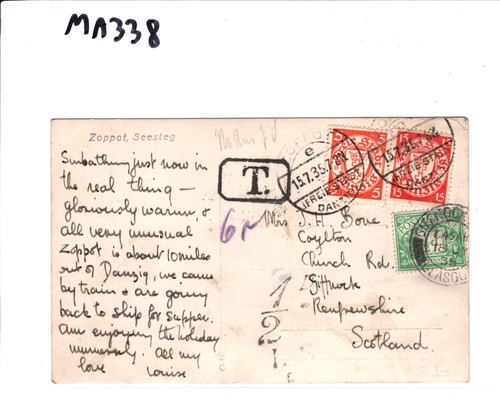 MA338
Zoppot, Seesteg
Sunbathing just now in
the real thing —
gloriously warm, &
all very unusual
Zoppot is about 10 miles
out of Danzig, we came
by train & are going
back to ship for supper.
Am enjoying the holiday
immensely. All my
love Louise
T.
15.7.35.7-8N
5
15
15
6
Mrs J. H. Bone
Coylton
Church Rd.
Giffnock
Renfrewshire
Scotland
1/2